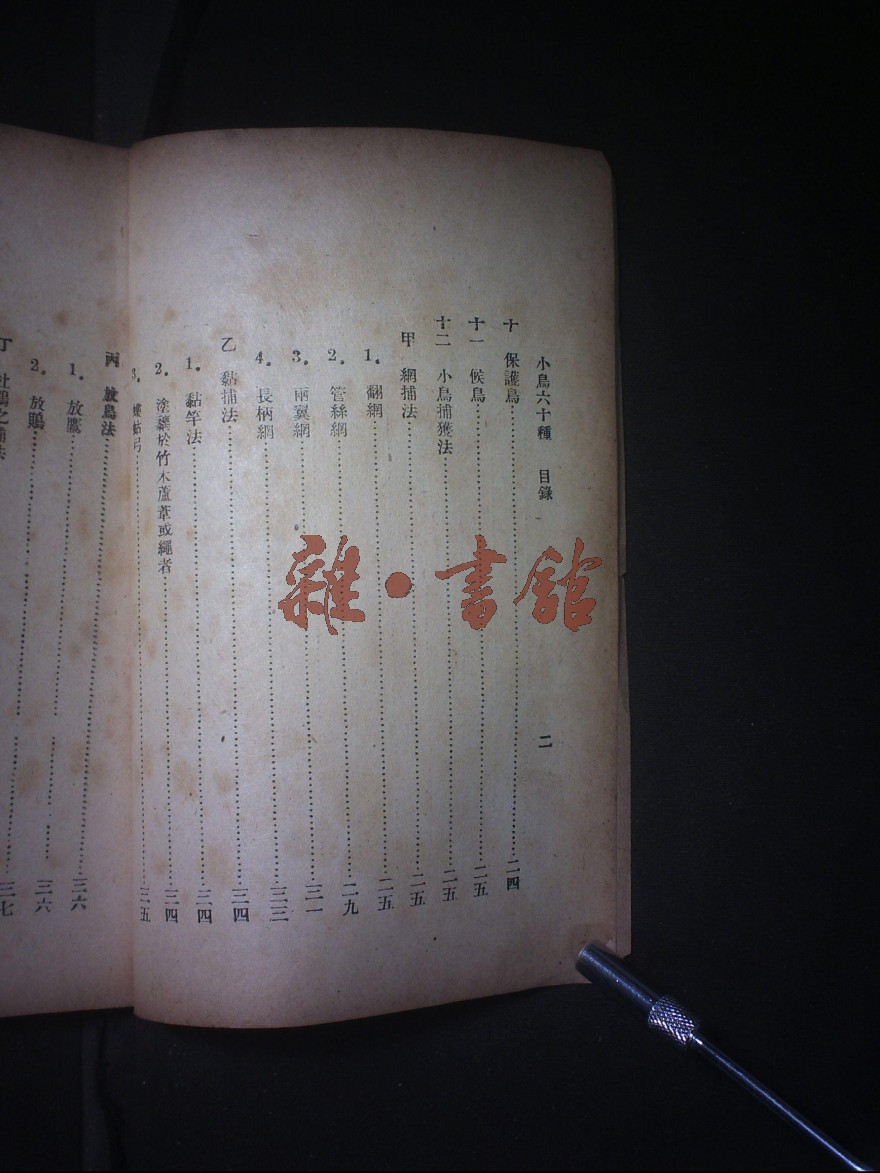 小鳥六十種 目錄 二
十 保護鳥……二四
十一 候鳥……二五
十二 小鳥捕獲法……二五
甲 網捕法……二五
1. 翻網……二五
2. 管絲網……二九
3. 兩翼網……三一
4. 長柄網……三三
乙 黏捕法……三四
1. 黏竿法……三四
2. 塗黐於竹木蘆葦或繩者……三四
3.……三五
丙 放鳥法
1. 放鷹……三六
2. 放鵰……三六
丁 之捕法……三七
雜·書館